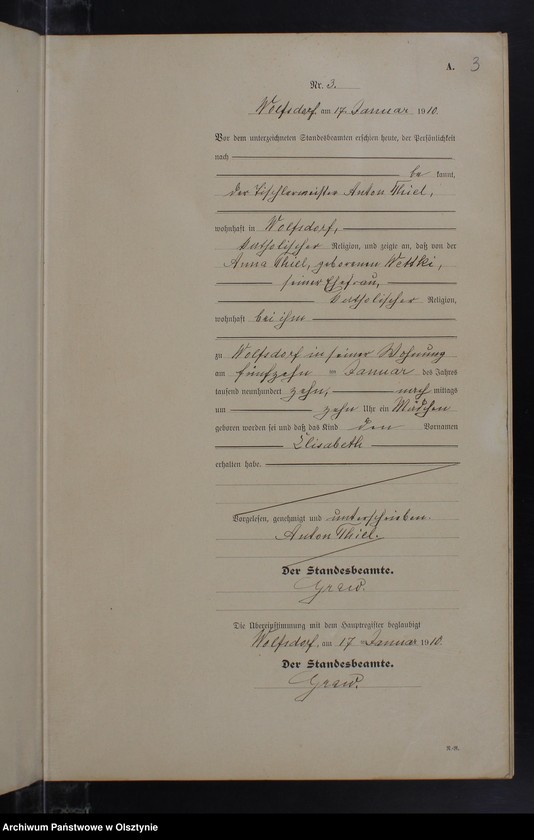 A. 3
Nr. 3.
Wolfsdorf, am 17. Januar 1910.
Vor dem unterzeichneten Standesbeamten erschien heute, der Persönlichkeit
nach
be kannt,
der Tischlermeister Anton Thiel,
wohnhaft in Wolfsdorf,
katholischer Religion, und zeigte an, daß von der
Anna Thiel, geborenen Wettki,
seiner Ehefrau,
katholischer Religion,
wohnhaft bei ihm
zu Wolfsdorf in seiner Wohnung
am fünfzehnten Januar des Jahres
tausend neunhundert zehn, nach mittags
um zehn Uhr ein Mädchen
geboren worden sei und daß das Kind den Vornamen
Elisabeth
erhalten habe.
Vorgelesen, genehmigt und unterschrieben.
Anton Thiel.
Der Standesbeamte.
Graw.
Die Übereinstimmung mit dem Hauptregister beglaubigt
Wolfsdorf, am 17. Januar 1910.
Der Standesbeamte.
Graw.
Archiwum Państwowe w Olsztynie